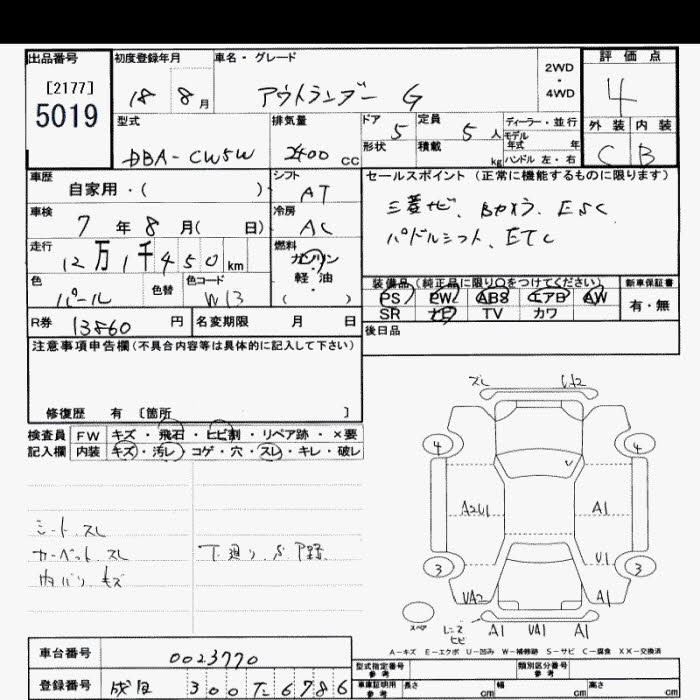 出品番号 初度登録年月 車名・グレード 評価点
[2177] 18 8月 アウトランダー G 2WD・4WD 4
5019
型式 排気量 ドア 5 定員 5人 ディーラー・並行 外装 内装
DBA-CW5W 2400 cc 形状 積載 kg モデル年式 年 C B
ハンドル 左・右
車歴 シフト セールスポイント(正常に機能するものに限ります)
自家用・( ) AT 三菱ナビ、Bカメラ、ESC
車検 冷房 パドルシフト、ETC
7年8月( 日) AC
走行 燃料
12万1千450km ガソリン・軽油
( )
色 色替 色コード 装備品(純正品に限り○をつけてください) 新車保証書
パール W13 PS PW ABS エアB AW 有・無
SR ナビ TV カワ
R券 13860円 名変期限 月 日 後日品
注意事項申告欄(不具合内容等は具体的に記入して下さい)
修復歴 有 〔箇所 〕
検査員 FW キズ・飛石・ヒビ割・リペア跡・×要
記入欄 内装 キズ・汚レ・コゲ・穴・スレ・キレ・破レ
シート スレ
カーペット スレ
内バリ キズ
下廻り S
スレ
4 4
A2U1 A1
V
U1
3 3
UA2 A1
スペア レンズヒビ A1 UA1 A1
A-キズ E-エクボ U-凹み W-補修跡 S-サビ C-腐食 XX-交換済
車台番号 0023770 型式指定番号 参考 類別区分番号 参考
登録番号 300 6786 車庫証明用 参考 長さ cm 幅 cm 高さ cm